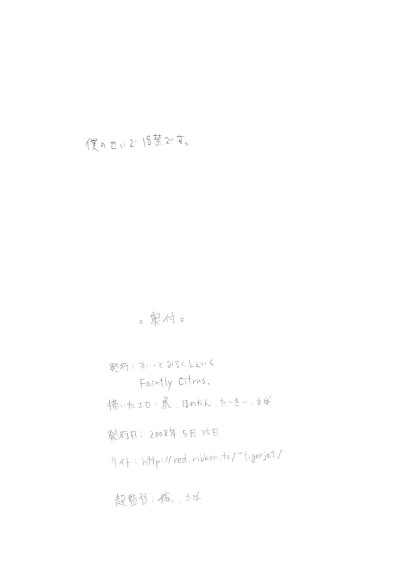 僕のせいで18禁です。
。奥付。
発行：すいーとみるくしぇいく
Faintly Citrus.
描いた人：虎、ほのかん、たーきー、さば
発行日：2008年5月25日
サイト：http://red.ribbon.to/~tigerjet/
超監督：嫁、さば